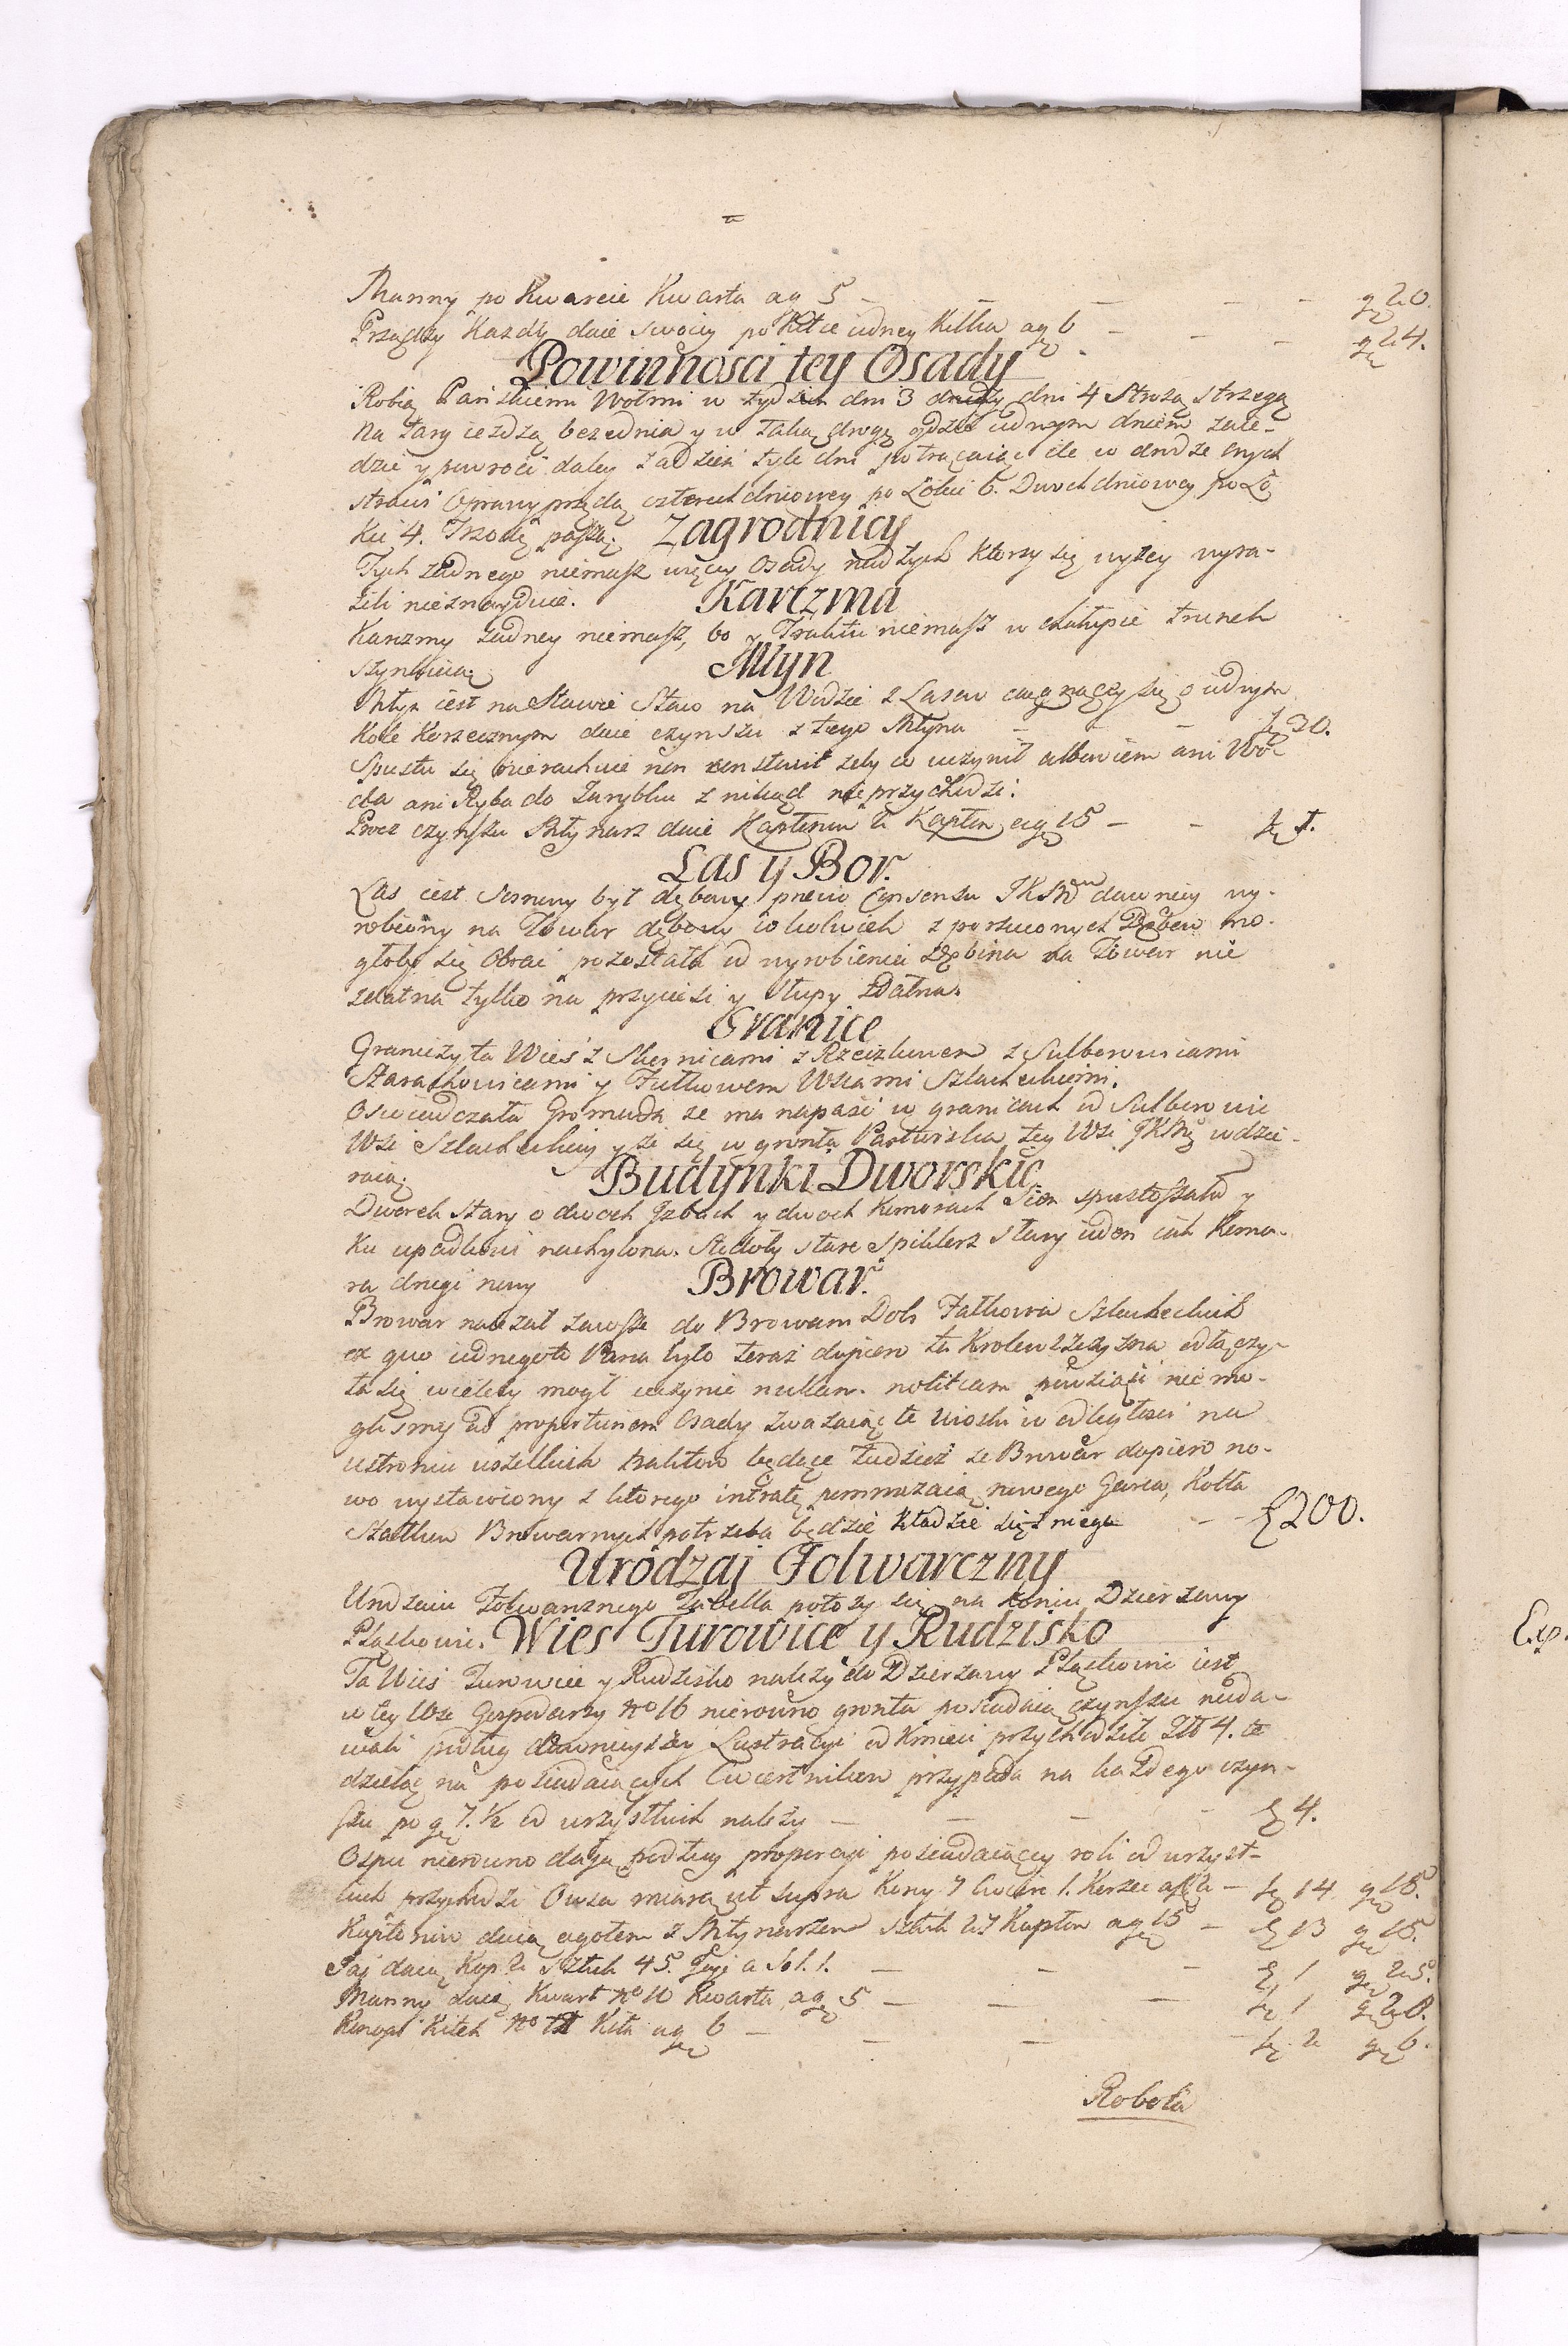 Manny po Kwarcie Kwarta a gr 5 — — — — — gr 20.
Przędzy Kazdy daie swoiey po Kitce iedney Kitka a gr 6 — — — gr 24.
Powinnosci tey Osady
Robią Pańskiemi Wołmi w tydzien dni 3 drudzy dni 4 Strozą strzegą
Na targ iezdzą bez ednia y w taką drogę gdzie iednym dniem zaie-
dzie y powroci daley zadzień tyle dni potrącaiąc ile w drodze onych
strawi Oprawy przędą czterechdniowy po Łokci 6. Dwochdniowy po Ło
kci 4. Trzodę paszą. Zagrodnicy
Tych zadnego niemasz więcy Osady nad tych ktorzy się wyzey wyra-
zili nieznayduie. Karczma
Karczmy zadney niemasz, bo y Traktu niemasz w chałupie trunek
szynkuią. Młyn
Młyn iest na Stawie Staw na Wodzie z Lasow ciągnący się o iednym
Kole Korzecznym daie czynszu z tego Młyna — — — zł 30.
Spustu się nierachuie non constitit zeby co uczynił albowiem ani Wo-
da ani Ryba do Zarybku z nikąd nie przychodzi.
Procz czynszu Młynarz daie Kapłonow 2 Kapłon a gr 15 — — zł 1.
Las y Bor.
Las iest Sosnowy był dębowy precio Consensu JKMci dawniey wy-
robiony na Towar dębowy iakolwiek z porzuconych Dębow mo-
głoby się Obrać pozostała od wyrobienia Dębina na Towar nie
zdatna tylko na przyciesi y Słupy zdatna.
Granice
Graniczy ta Wieś z Skornicami z Rzeizkowem z Sulborowicami
Starachowicami y Fałkowem Wsiami Szlacheckiemi.
Oswiadczała Gromada ze ma napaść w granicach od Sulborowic
Wsi Szlacheckiey y ze się w gronta Pastwiska tey Wsi JKMci wdzie-
raią. Budynki Dworskie
Dworek Stary o dwoch Izbach y dwoch Komorach Sien spustoszała y
Ku upadkowi nachylona. Stodoły stare Spiklerz stary ieden iak Komo-
ra drugi nowy Browar.
Browar nalezał zawsze do Browaru Dobr Fałkowa Szlacheckich
ex quo iednegoto Pana było teraz dopiero ta Krolewszczyzna odłączy-
ła się wieleby mogł uczynic nullam notitiam powziąść niemo-
glismy ad proportionem Osady zwazaiąc te wioski w odległosci na
ustroniu wszelkich traktow będące tudziesz ze Browar dopiero no-
wo wystawiony z ktorego intratę pomnazaią nowego Garca, Kotła
Statkow Browarnych potrzeba będzie kładzie się z niego — — zł 200.
Urodzaj Folwarczny
Urodzaiu Folwarcznego Tabella połozy się na Koncu Dzierzawy
Pląskowic. Wies Turowice y Rudzisko
Ta Wieś Turowice y Rudzisko nalezy do Dzierzawy Pląskowic iest
w tey Wsi Gospodarzy No 16 nierowno gronta posiadaią czynszu nieda-
wali podług dawnieyszey Lustracyi od Kmieci przychodziło Złł 4. te
dzieląc na posiadaiących Cwiertnikow przypada na kazdego czyn-
szu po gr 7. ½ od wszystkich nalezy — — — zł 4.
Ospu nierowno daią podług proporcyi posiadaiącey roli od wszyst-
kich przychodzi Owsa miarą ut supra Korcy 7 Cwierc 1. Korzec a zł 2 — zł 14 gr 15.
Kapłonow daią ogołem z Młynarzem Sztuk 27 Kapłon a gr 15 — zł 13 gr 15.
Jaj daią Kop 2 Sztuk 45. Jaje a Sol. 1. — — — zł 1 gr 25.
Manny daią Kwart No 10 Kwarta a gr 5 — — — zł 1 gr 20.
Konopi Kitek No 11 Kita a gr 6 — — — zł 2 gr 6.
Robota
Exp.